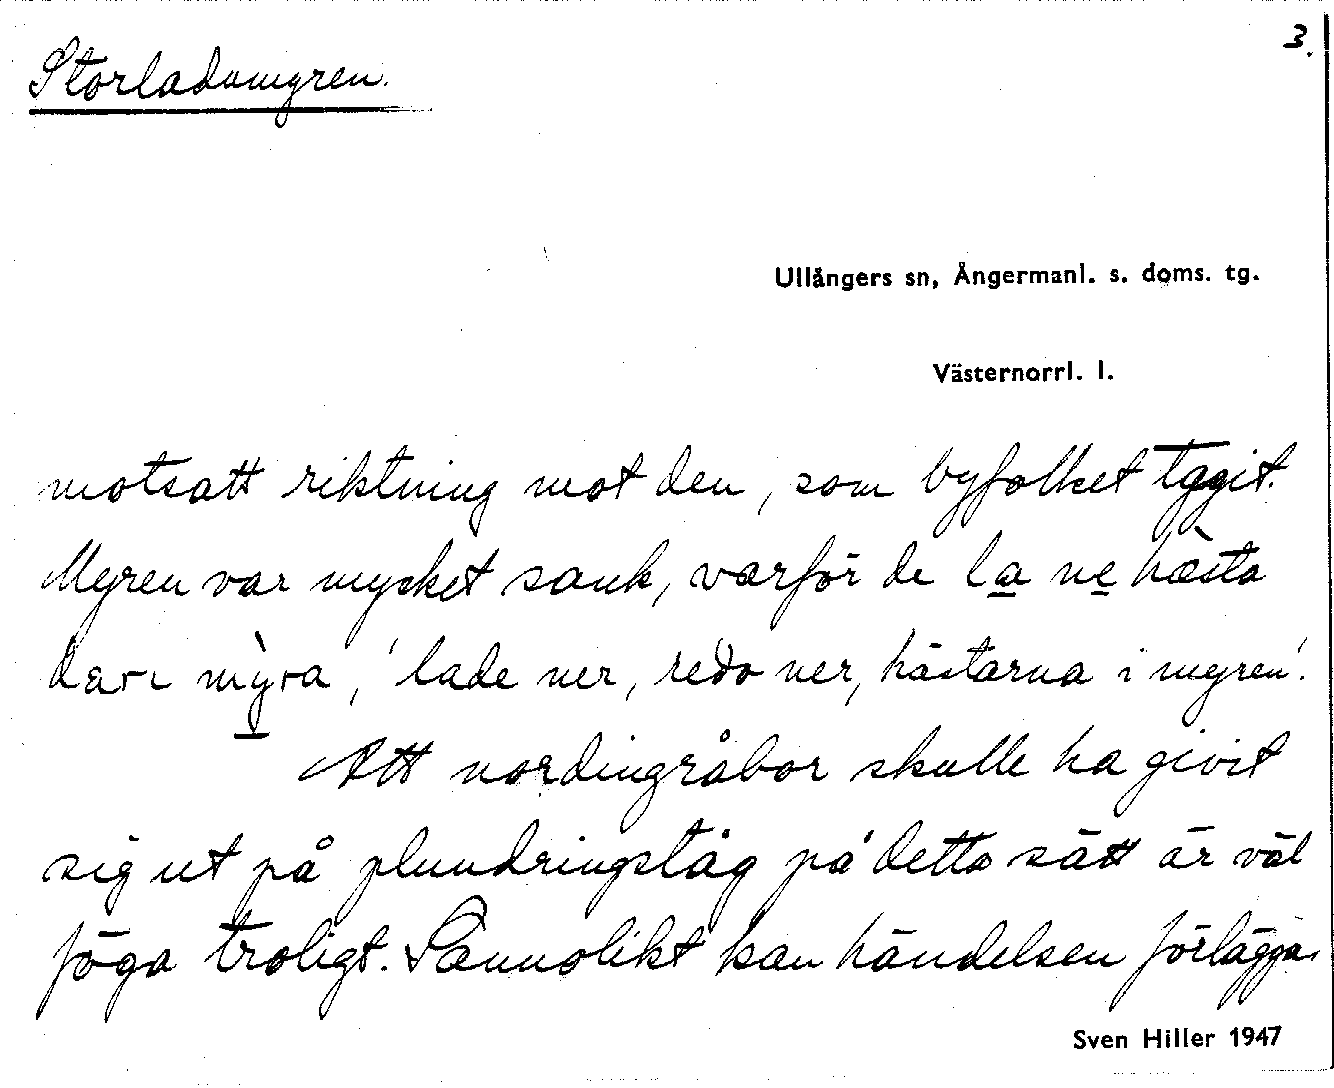 3.
Storladumyren.
Ullångers sn, Ångermanl. s. doms. tg.
Västernorrl. l.
motsatt riktning mot den, som byfolket tagit.
Myren var mycket sank, varför de la ne hæsta
dæri myra, 'lade ner, redo ner, hästarna i myren'.
Att nordingråbor skulle ha givit
sig ut på plundringståg på detta sätt är väl
föga troligt. Sannolikt kan händelsen förläggas
Sven Hiller 1947